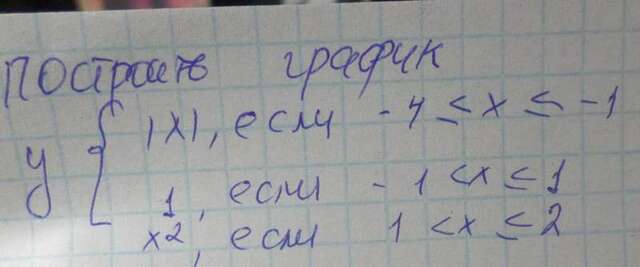 построить график
y { |x|, если -4 ≤ x ≤ -1
1, если -1 < x ≤ 1
x2, если 1 < x ≤ 2